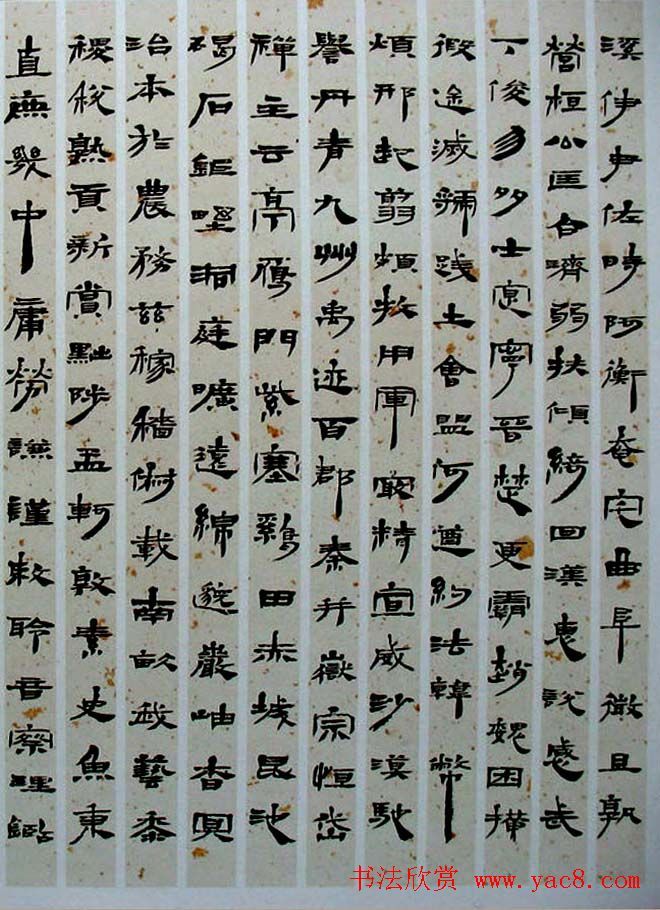 溪伊尹佐時阿衡奄宅曲阜微旦孰
營桓公匡合濟弱扶傾綺回漢惠說感武
丁俊勿多士寔寧晉楚更霸趙魏困橫
假途滅虢踐土會盟何遵約法韓幣
煩刑起翦頗牧用軍最精宣威沙漠馳
譽丹青九州禹迹百郡秦并嶽宗恒岱
禪主云亭鴈門紫塞雞田赤城昆池
碣石鉅野洞庭曠遠綿邈巖岫杳冥
治本於農務茲稼穡俶載南畝我藝黍
稷稅熟貢新賞黜陟孟軻敦素史魚秉
直庶幾中庸勞謙謹敕聆音察理鑑
书法欣赏 www.yac8.com